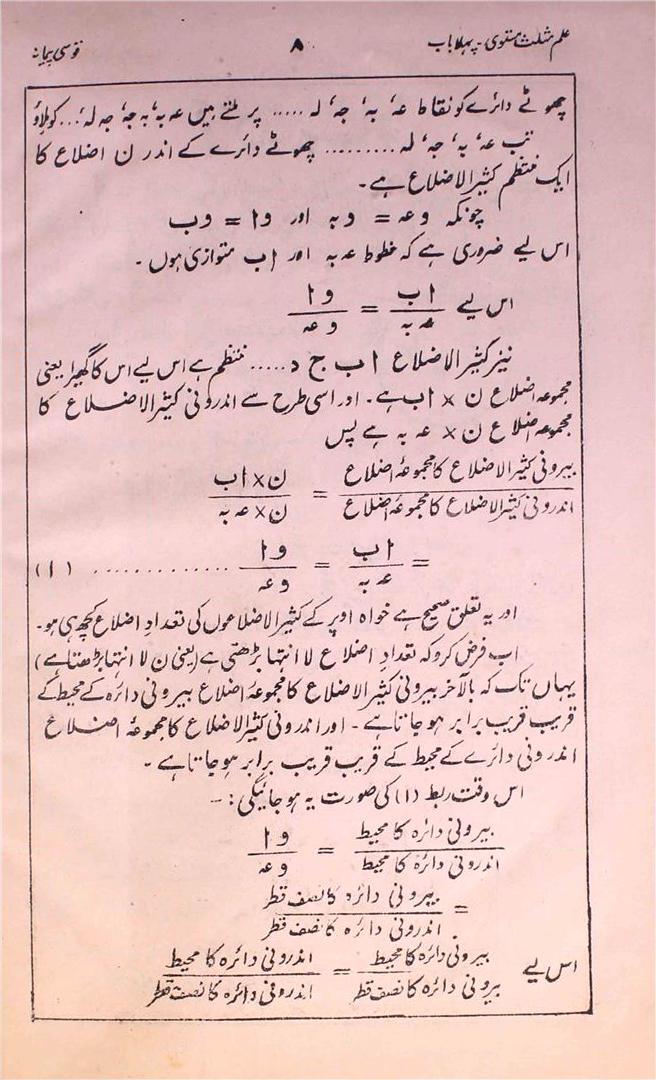 علم مثلث مستوی - پہلا باب ۸ قوسی پیمانہ
چھوٹے دائرے کو نقاط عہ، بہ، جہ، لہ ..... پر ملتے ہیں عہ بہ، بہ جہ، جہ لہ، ... کو ملاؤ
تب عہ، بہ، جہ، لہ ......... چھوٹے دائرے کے اندر ن اضلاع کا
ایک منتظم کثیر الاضلاع ہے۔
چونکہ و عہ = و بہ اور و ا = و ب
اس لیے ضروری ہے کہ خطوط عہ بہ اور ا ب متوازی ہوں۔
اس لیے ا ب / عہ بہ = و ا / و عہ
نیز کثیر الاضلاع ا ب ج د ..... منتظم ہے اس لیے اس کا گھیرا یعنی
مجموعہ اضلاع ن × ا ب ہے۔ اور اسی طرح سے اندرونی کثیر الاضلاع کا
مجموعہ اضلاع ن × عہ بہ ہے پس
بیرونی کثیر الاضلاع کا مجموعۂ اضلاع / اندرونی کثیر الاضلاع کا مجموعۂ اضلاع = ن × ا ب / ن × عہ بہ
= ا ب / عہ بہ = و ا / و عہ ............. (۱)
اور یہ تعلق صحیح ہے خواہ اوپر کے کثیر الاضلاعوں کی تعدادِ اضلاع کچھ ہی ہو۔
اب فرض کرو کہ تعدادِ اضلاع لا انتہا بڑھتی ہے (یعنی ن لا انتہا بڑھتا ہے)
یہاں تک کہ بالآخر بیرونی کثیر الاضلاع کا مجموعۂ اضلاع بیرونی دائرہ کے محیط کے
قریب قریب برابر ہو جاتا ہے۔ اور اندرونی کثیر الاضلاع کا مجموعۂ اضلاع
اندرونی دائرے کے محیط کے قریب قریب برابر ہو جاتا ہے۔
اس وقت ربط (۱) کی صورت یہ ہو جائیگی :-
بیرونی دائرہ کا محیط / اندرونی دائرہ کا محیط = و ا / و عہ
= بیرونی دائرہ کا نصف قطر / اندرونی دائرہ کا نصف قطر
اس لیے بیرونی دائرہ کا محیط / بیرونی دائرہ کا نصف قطر = اندرونی دائرہ کا محیط / اندرونی دائرہ کا نصف قطر